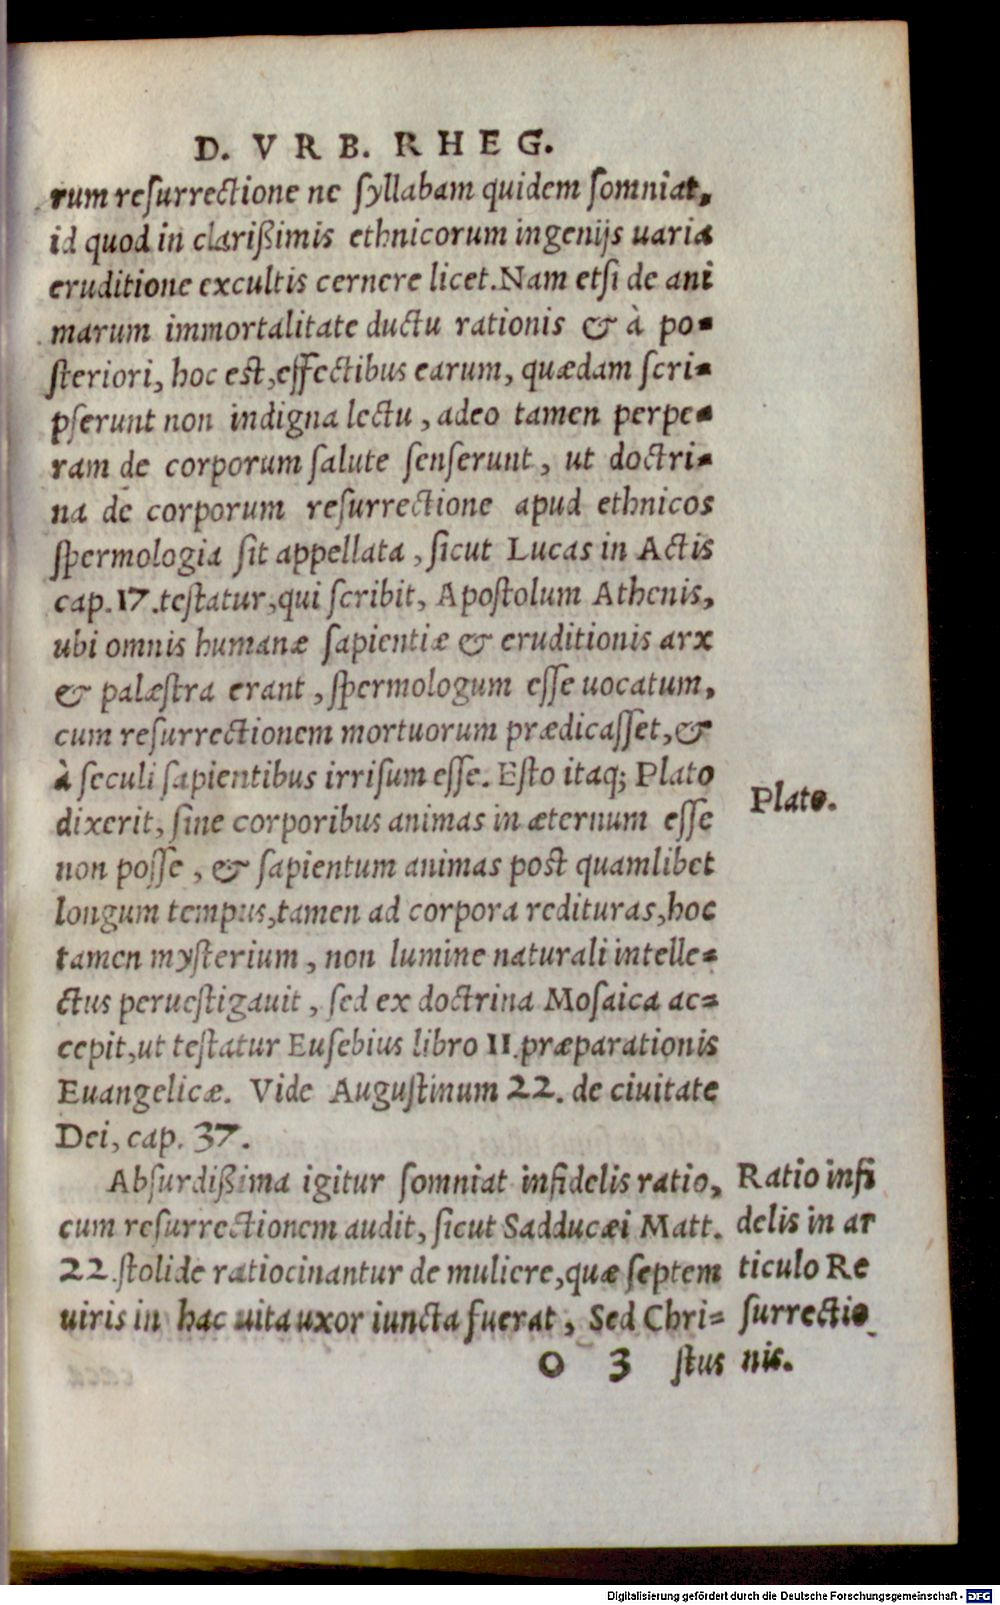 D. VRB. RHEG.
rum reſurrectione ne ſyllabam quidem ſomniat,
id quod in clarißimis ethnicorum ingenijs uaria
eruditione excultis cernere licet. Nam etſi de ani
marum immortalitate ductu rationis & à po-
ſteriori, hoc est, effectibus earum, quædam ſcri-
pſerunt non indigna lectu, adeo tamen perpe-
ram de corporum ſalute ſenſerunt, ut doctri-
na de corporum reſurrectione apud ethnicos
ſpermologia ſit appellata, ſicut Lucas in Actis
cap. 17. teſtatur, qui ſcribit, Apoſtolum Athenis,
ubi omnis humanæ ſapientiæ & eruditionis arx
& palæſtra erant, ſpermologum eſſe uocatum,
cum reſurrectionem mortuorum prædicaſſet, &
à ſeculi ſapientibus irriſum eſſe. Eſto itaq; Plato
dixerit, ſine corporibus animas in æternum eſſe
non poſſe, & ſapientum animas post quamlibet
longum tempus, tamen ad corpora redituras, hoc
tamen myſterium, non lumine naturali intelle=
ctus perueſtigauit, ſed ex doctrina Moſaica ac=
cepit, ut teſtatur Euſebius libro 11. præparationis
Euangelicæ. Vide Auguſtinum 22. de ciuitate
Dei, cap. 37.
Abſurdißima igitur ſomniat infidelis ratio,
cum reſurrectionem audit, ſicut Sadducæi Matt.
22. ſtolide ratiocinantur de muliere, quæ ſeptem
uiris in hac uita uxor iuncta fuerat, Sed Chri=
O 3 ſtus
Plato.
Ratio infi
delis in ar
ticulo Re
ſurrectio
nis.
Digitalisierung gefördert durch die Deutsche Forschungsgemeinschaft - DFG